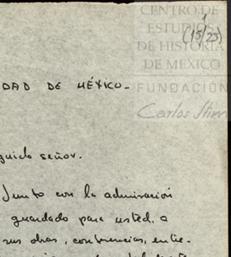 CENTRO DE
ESTUDIOS
DE HISTORIA
DE MEXICO
FUNDACIÓN
Carlos Slim
1
(15/23)
DAD DE MÉXICO.-
guido señor.
Junto con la admiración
guardado para usted, a
sus obras, conferencias, entre-